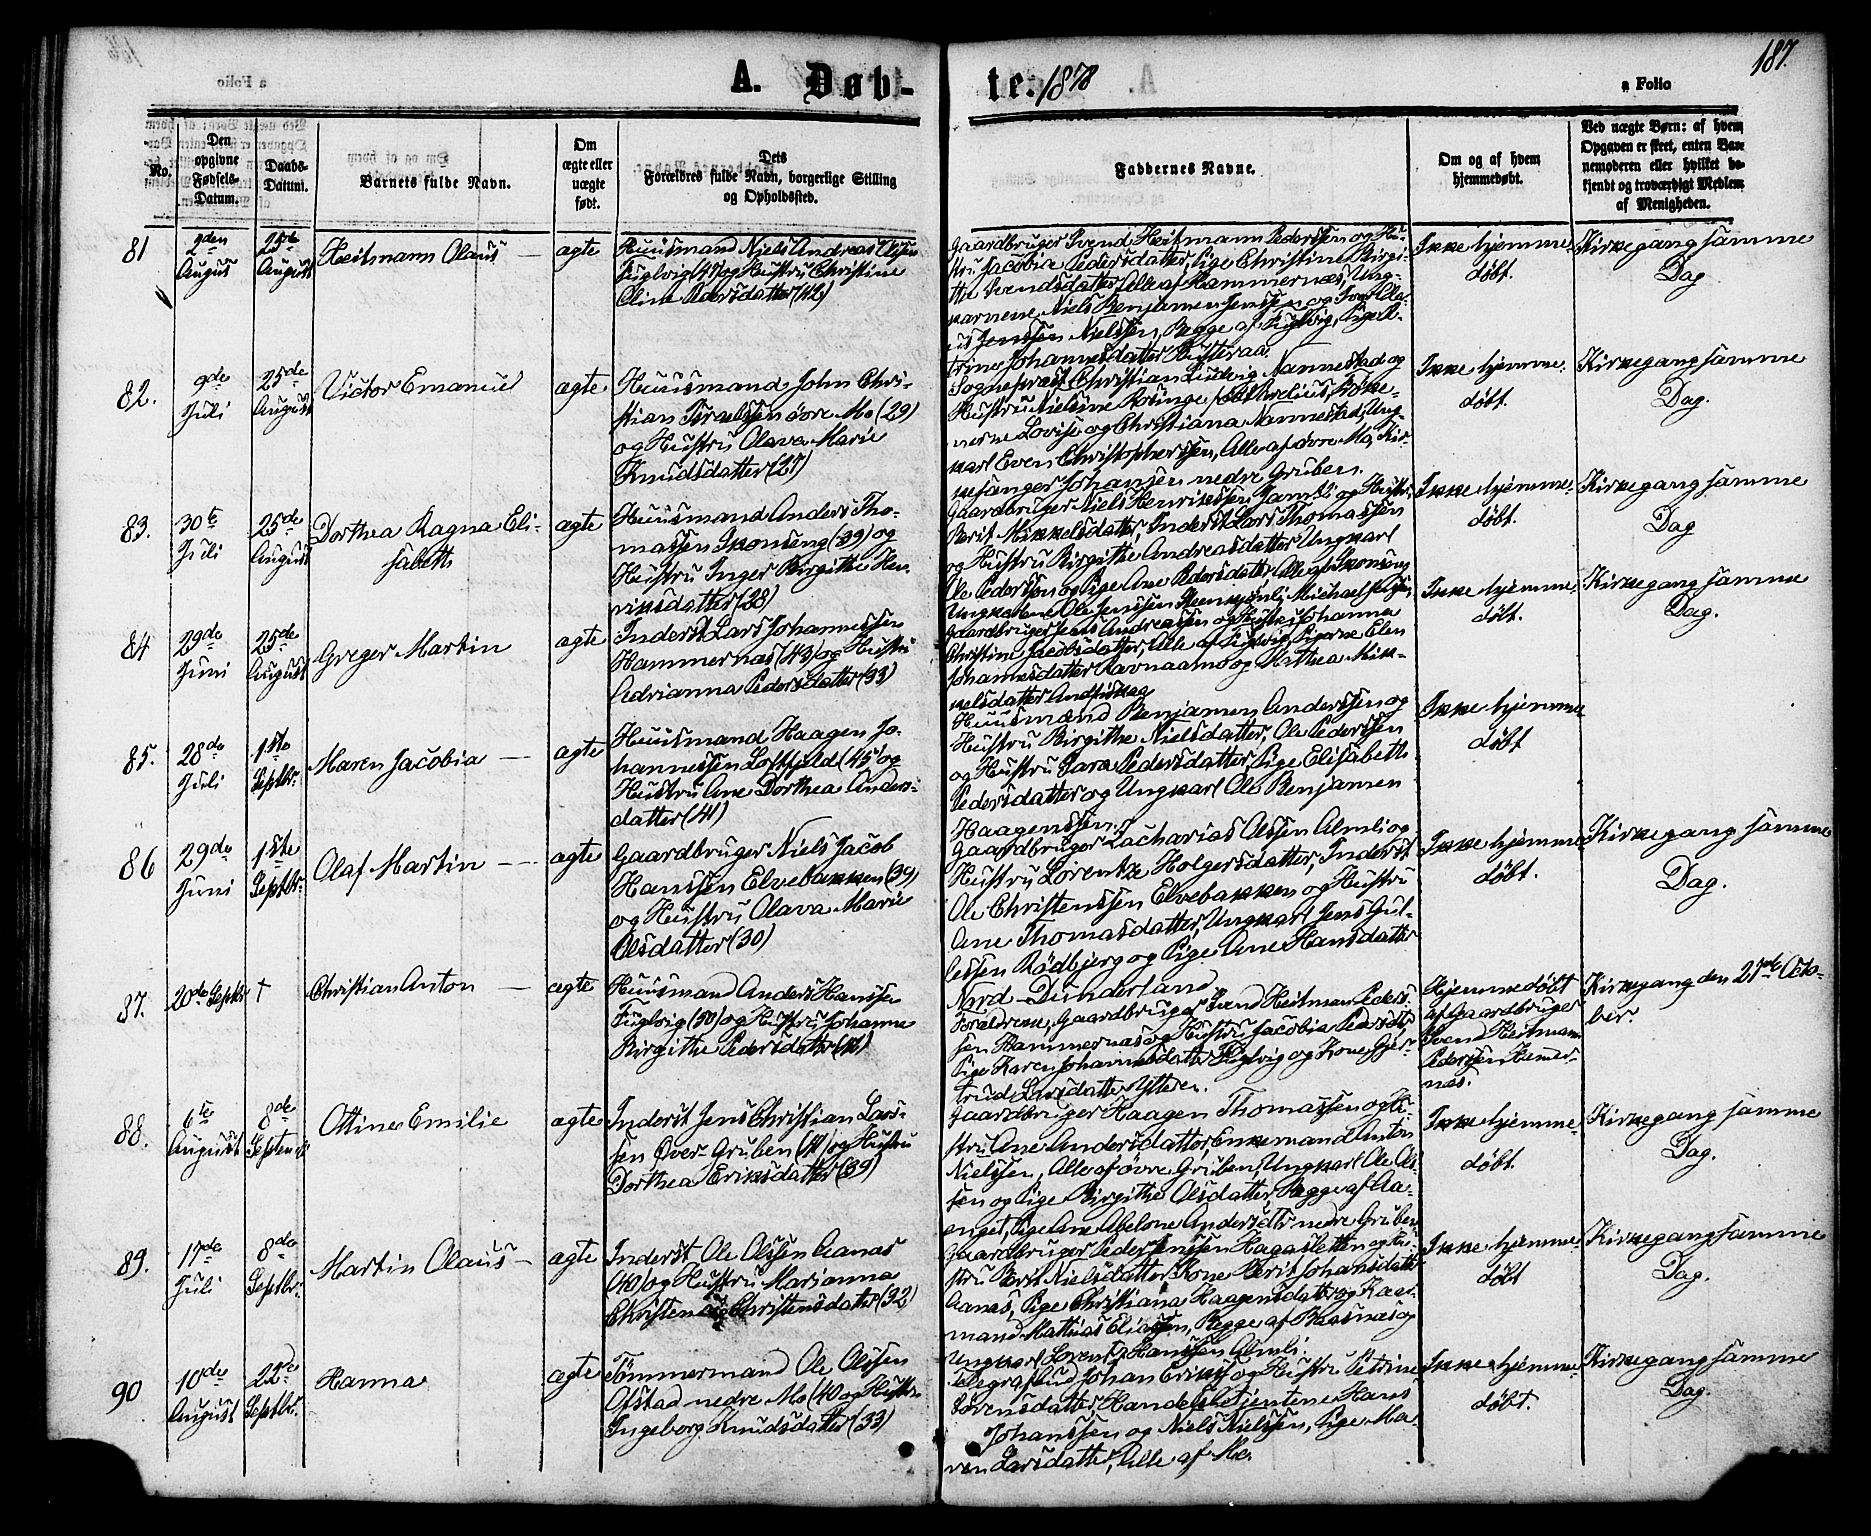 187.
A. Døb-
te: 1878
a Folio
No.
Den opgivne Fødsels-Datum.
Daabs-Datum.
Barnets fulde Navn.
Om ægte eller uægte født.
Dets Forældres fulde Navn, borgerlige Stilling og Opholdssted.
Faddernes Navne.
Om og af hvem hjemmedøbt.
Ved uægte Børn: af hvem Opgaven er skeet, enten Barnemoderen eller hvilket bekjendt og troværdigt Medlem af Menigheden.
81
2den August
25de August
Heitmann Olaus
ægte
Huusmand Niels Andreas Olsen
Fuglvig (47) og Hustru Christine
Oline Pedersdatter (42)
Gaardbruger Svend Heitmann Pederssen og Hu-
stru Jacobia Pedersdatter, Pige Christine Birgi-
the Svendsdatter, Alle af Hammernæs, Ung-
karlene Niels Benjamin Jenssen og
Jenssen Nielssen, Begge af Fuglvig, Pige
trine Johannesdatter
Ikke hjemme-
døbt.
Kirkegang samme
Dag
82.
9de Juli
25de August
Victor Emanuel
ægte
Huusmand John Chri-
stian Israelssen øvre Mo (29)
og Hustru Olava Marie
Knudsdatter (27)
Sognepræst Christian Ludvig Nannestad og
Hustru Nielsine Rosinge født Frøke-
nerne Lovise og Christiana Nannestad, Ung-
karl Even Christopherssen, Alle af øvre Mo, Kir-
kesanger Johansen nedre Gruben.
Ikke hjemme-
døbt.
Kirkegang samme
Dag.
83.
30te Juli
25de August
Dorthea Ragna Eli-
sabeth
ægte
Huusmand Anders Tho-
massen Skonseng (39) og
Hustru Inger Birgithe Hen-
riksdatter (28)
Gaardbruger Niels Henrikssen og Hustru
Berit Mikkelsdatter, Inderst Lars Thomassen
og Hustru Birgithe Andreasdatter Ungkarl
Ole Pederssen og Pige Ane Pedersdatter, Alle af Skonseng
Ikke hjemme-
døbt.
Kirkegang samme
Dag
84
29de Juni
25de August
Greger Martin
ægte
Inderst Lars Johannessen
Hammernæs (43) og Hustru
Adrianna Pedersdatter (33)
Ungkarlene Ole Jenssen
Gaardbruger Jens Andreassen og Hustru Johanna
Christine Jacobsdatter, Alle af Fuglvig, Pigerne Elen
Johannesdatter Ravnaamo og Marthea Mik-
kelsdatter
Ikke hjemme-
døbt.
Kirkegang samme
Dag.
85.
28de Juli
1ste Septbr.
Maren Jacobia
ægte
Huusmand Haagen Jo-
hannessen (45) og
Hustru Ane Dorthea Anders-
datter (41)
Huusmænd Benjamin Anderssen og
Hustru Birgithe Nielsdatter, Ole Pederssen
og Hustru Sara Pedersdatter, Pige Elisabeth
Pedersdatter og Ungkarl Ole Benjamin
Haagenssen.
Ikke hjemme
døbt
86
29de Juni
1ste Septbr.
Olaf Martin
ægte
Gaardbruger Niels Jacob
Hanssen Elvebakken (39)
og Hustru Olava Marie
Olsdatter (30)
Gaardbruger Zacharias Olssen Almli og
Hustru Lorentze Holgersdatter, Inderst
Ole Christenssen Elvebakken og Hustru
Ane Thomasdatter, Ungkarl Jens Gul-
lessen Rödbjerg og Pige Ane Hansdatter
Nord-Dunderland
Ikke hjemme-
døbt.
Kirkegang samme
Dag.
87.
20de Septbr
†
Christian Anton
ægte
Huusmand Anders Hanssen
Fuglvig (50) og Hustru Johanne
Birgithe Pedersdatter
Forældrene, Gaardbruger Svend Heitman Peders-
sen Hammernæs og Hustru Jacobia Pedersdtr,
Pige Karen Johannesdatter Fuglvig og Kone Gjer-
trud Larsdatter Ytteren.
Hjemmedøbt
af Gaardbruger
Svend Heitmann
Pederssen Hemer-
næs.
Kirkegang den 27de Octo-
ber.
88.
6te August
8de September
Ottine Emilie
ægte
Inderst Jens Christian Lars-
sen Øver-Gruben (41) og Hustru
Dorthea Eriksdatter (39)
Gaardbruger Haagen Thomassen og Hu-
stru Ane Andersdatter, Enkemand Anton
Nielssen, Alle af øvre Gruben, Ungkarl Ole Ols-
sen og Pige Birgithe Olsdatter, Begge af Aa-
enget, Pige Ane Abelone Andersdtr nedre Gruben
Ikke hjemme-
døbt.
Kirkegang samme
Dag.
89.
17de Juli
8de Septbr.
Martin Olaus
ægte
Inderst Ole Olssen Aanæs
(40) og Hustru Marianna
Christensdatter (32)
Gaardbruger Peder Jenssen Hagasletten og Hu-
stru Berit Nielsdatter, Kone Berit Johansdatter
Aanæs, Pige Christiana Haagensdatter og Kaar-
mand Mathias Eliassen, Begge af Baasnæs og
Ungkarl Lorentz Hanssen Almli.
Ikke hjemme-
døbt
Kirkegang samme
Dag.
90
10de August
22de Septbr.
Hanna
ægte
Tömmermand Ole Olssen
Ofstad nedre Mo (40) og Hustru
Ingeborg Knudsdatter (33)
Telegrafbud Johan Erikss. og Hustru Petrine
Sörensdatter, Handelsbetjentene Hans
Johanssen og Niels Nielssen, Pige Ma-
ren Larsdatter, Alle af Mo.
Ikke hjemme-
døbt.
Kirkegang samme
Dag.